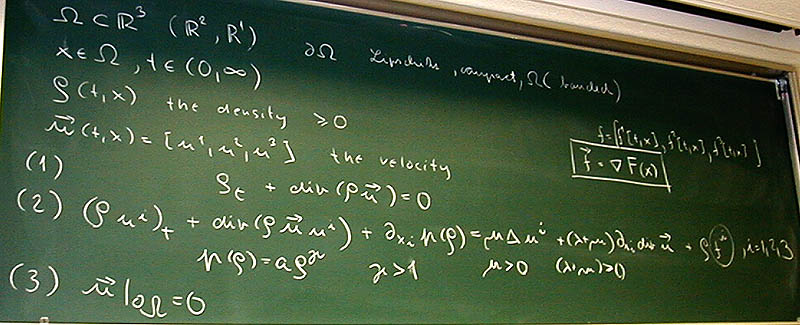 Ω ⊂ ℝ³ (ℝ², ℝ¹)
x ∈ Ω, t ∈ (0, ∞) ∂Ω Lipschitz, compact, Ω (bounded)
ρ(t,x) the density ≥ 0
u⃗(t,x) = [u¹, u², u³] the velocity
f = [f¹[t,x], f²[t,x], f³[t,x]]
f⃗ = ∇F(x)
(1) ρₜ + div(ρu⃗) = 0
(2) (ρuⁱ)ₜ + div(ρu⃗uⁱ) + ∂ₓᵢ p(ρ) = μΔuⁱ + (λ+μ)∂ₓᵢ div u⃗ + ρfⁱ, i=1,2,3
p(ρ) = aρ^γ γ>1 μ>0 (λ+μ)≥0
(3) u⃗|∂Ω = 0